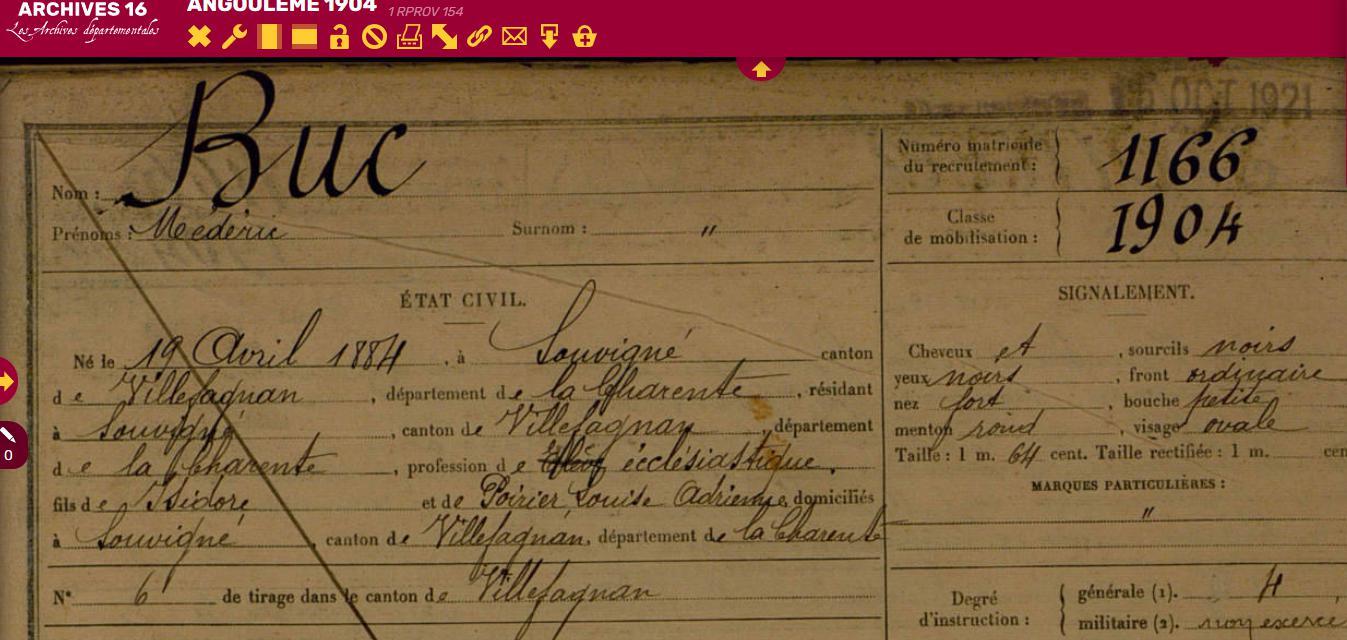 ARCHIVES 16
Les Archives départementales
ANGOULÊME 1904 1 RPROV 154
15 OCT 1921
Nom : Buc
Prénoms : Médéric Surnom : "
Numéro matricule du recrutement : 1166
Classe de mobilisation : 1904
ÉTAT CIVIL.
Né le 19 Avril 1884, à Souvigné canton
de Villefagnan, département de la Charente, résidant
à Souvigné, canton de Villefagnan, département
de la Charente, profession de écclésiastique,
fils de Isidore et de Poirier Louise Adrienne, domiciliés
à Souvigné, canton de Villefagnan, département de la Charente
N° 6 de tirage dans le canton de Villefagnan
SIGNALEMENT.
Cheveux et, sourcils noirs
yeux noirs, front ordinaire
nez fort, bouche petite
menton rond, visage ovale
Taille : 1 m. 64 cent. Taille rectifiée : 1 m. cen
MARQUES PARTICULIÈRES :
"
Degré d'instruction : générale (1). 4
militaire (2). non exercé
0